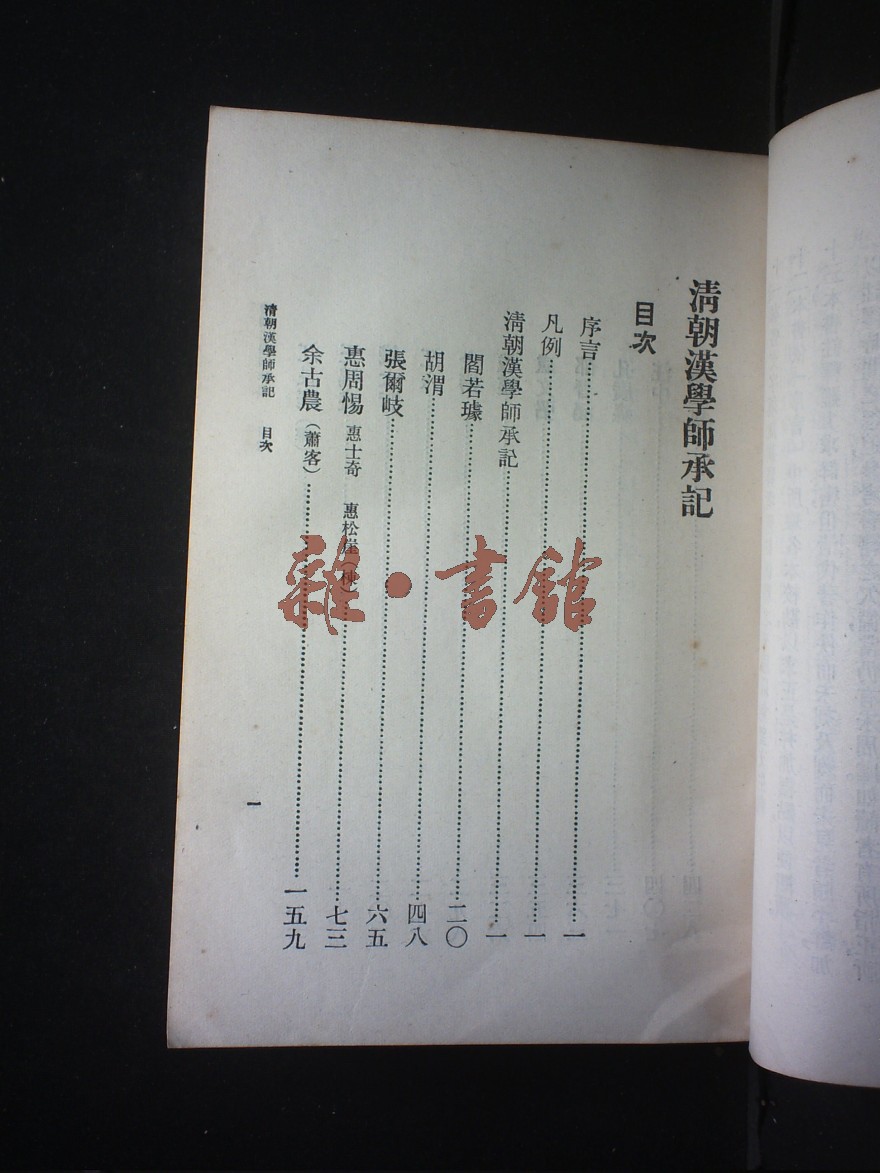 清朝漢學師承記
目次
序言⋯⋯一
凡例⋯⋯一
清朝漢學師承記⋯⋯一
閻若璩⋯⋯二〇
胡渭⋯⋯四八
張爾岐⋯⋯六五
惠周惕 惠士奇 惠松崖(棟)⋯⋯七三
余古農(蕭客)⋯⋯一五九
清朝漢學師承記 目次
一
雜·書館